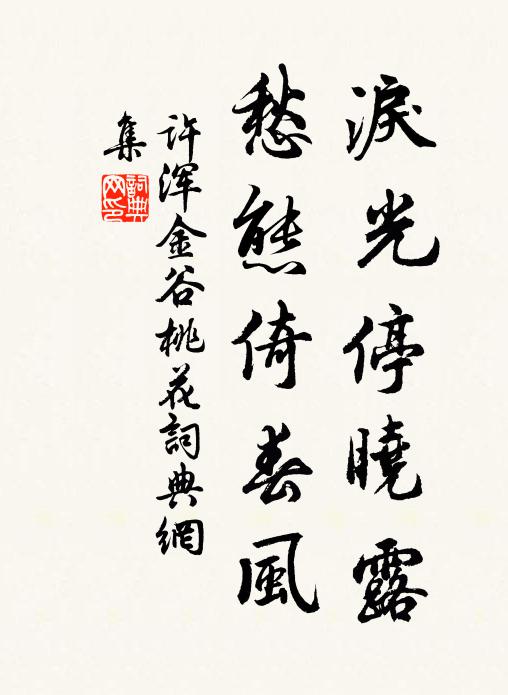 淚光停曉露
愁態倚春風
许浑金谷桃花詞典網
集
詞典网印